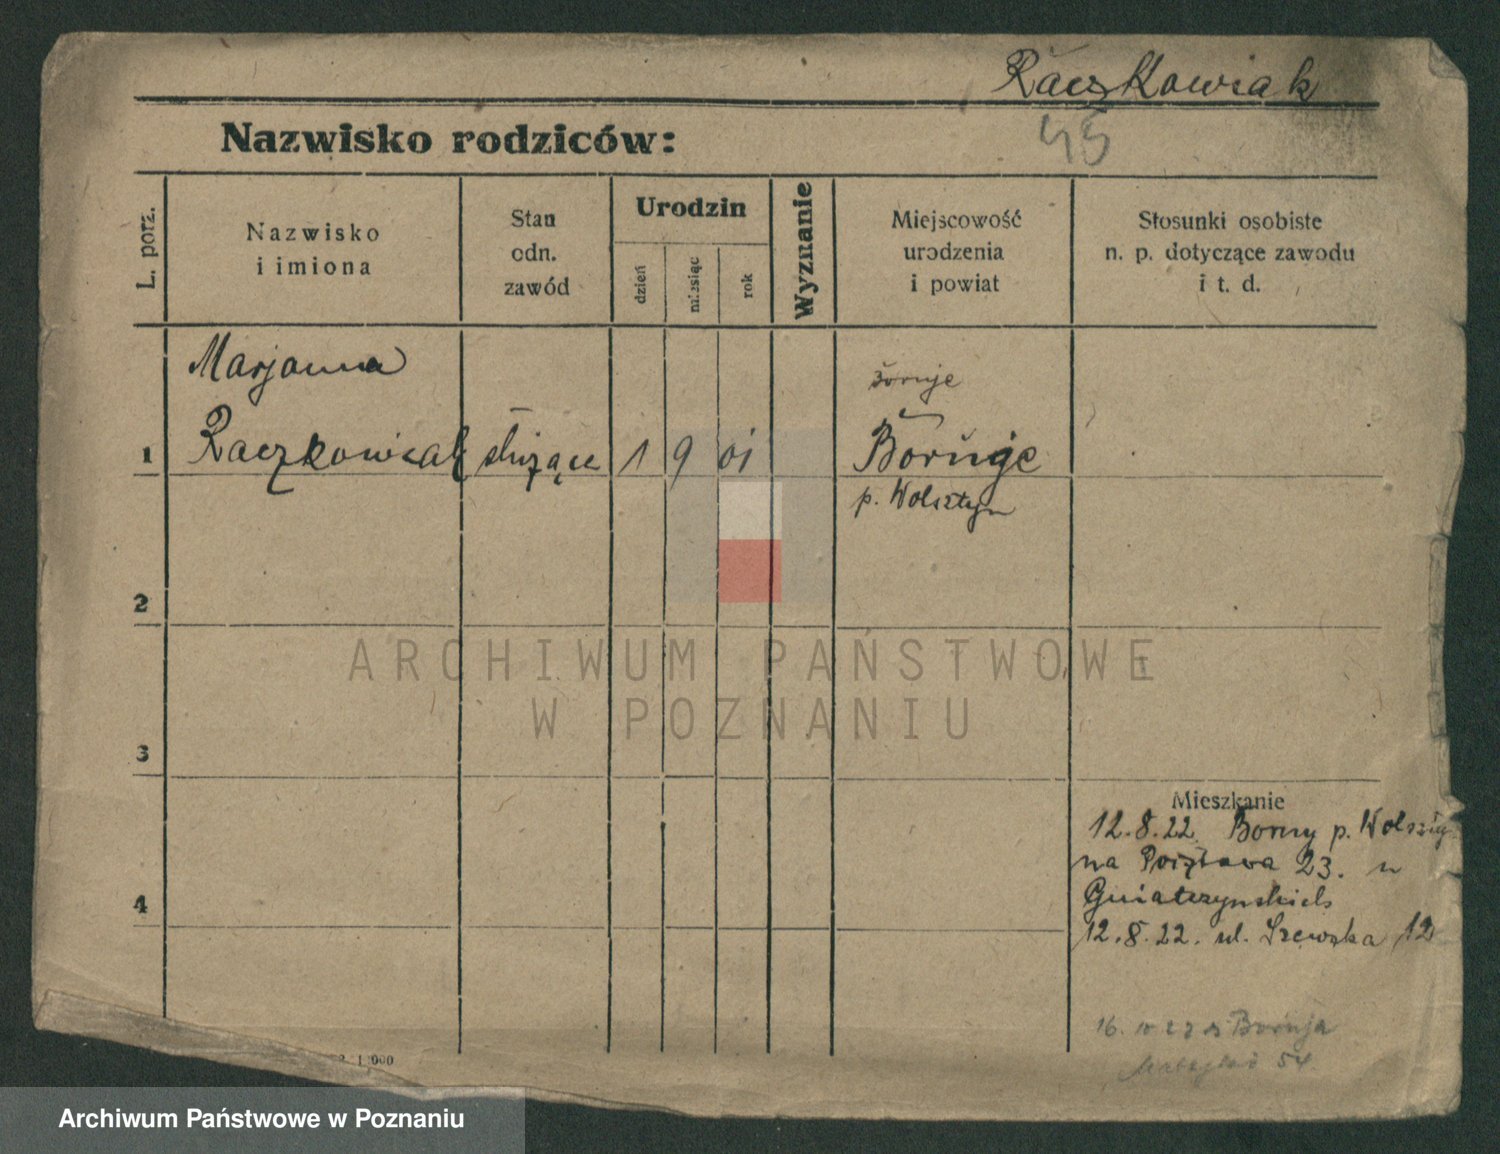 Raczkowiak
45
Nazwisko rodziców:
L. porz.
Nazwisko
i imiona
Stan
odn.
zawód
Urodzin
dzień
miesiąc
rok
Wyznanie
Miejscowość
urodzenia
i powiat
Stosunki osobiste
n. p. dotyczące zawodu
i t. d.
Marjanna
1 Raczkowiak służące 1 9 01 Boruje
p. Wolsztyn
2
ARCHIWUM PAŃSTWOWE
W POZNANIU
3
Mieszkanie
12.8.22 Boruy p. Wolsztyn
na Pocztowa 23. u
4
12.8.22. ul. Szewska 12
16. Boruja
54.
1 000
Archiwum Państwowe w Poznaniu